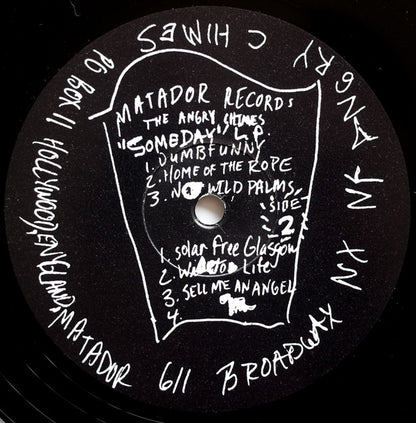 MATADOR RECORDS
THE ANGRY SHINES
"SOMEDAY" L.P.
1. DUMBFUNNY
2. HOME OF THE ROPE
3. NOT WILD PALMS
SIDE
2
1. Solar Free Glasgow
2. Life
3. SELL ME AN ANGEL
4.
C HIMES
PO BOX 11 HOLLYWOOD, ENGLAND, MATADOR 611 BROADWAY NY NY ANGRY